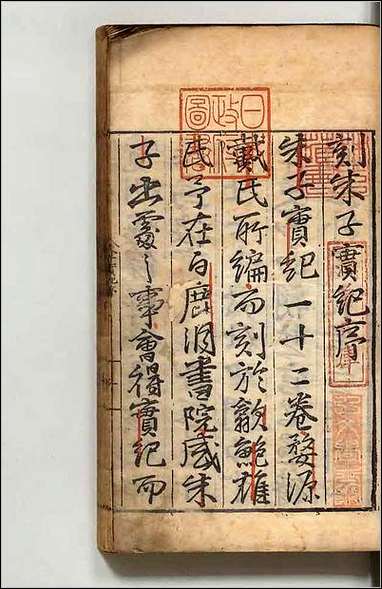 刻朱子實紀序
朱子實紀一十二卷婺源
戴氏所編而刻於歙鮑雄
氏予在白鹿洞書院感朱
子出處之事會得實紀而
日本
政府
圖書